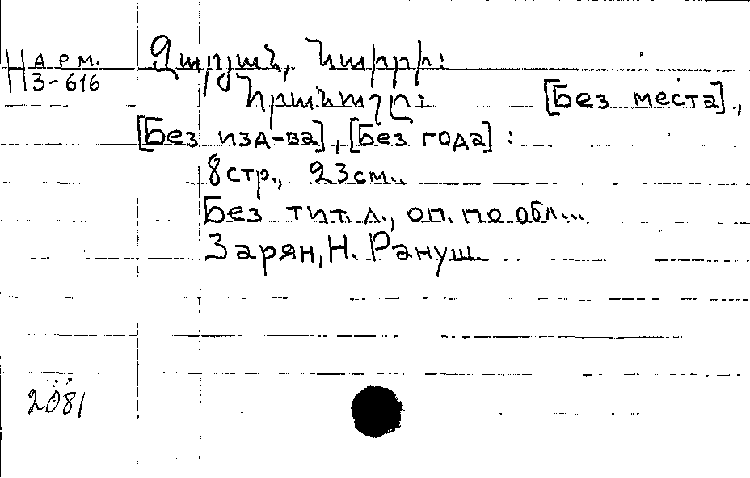 Н арм. Զարյան, Նաիրի:
3-616
[Без места],
[Без изд-ва], [Без года]:
8 стр., 23 см.
Без тит. л., оп. по обл...
Зарян, Н. Рануш.
2081